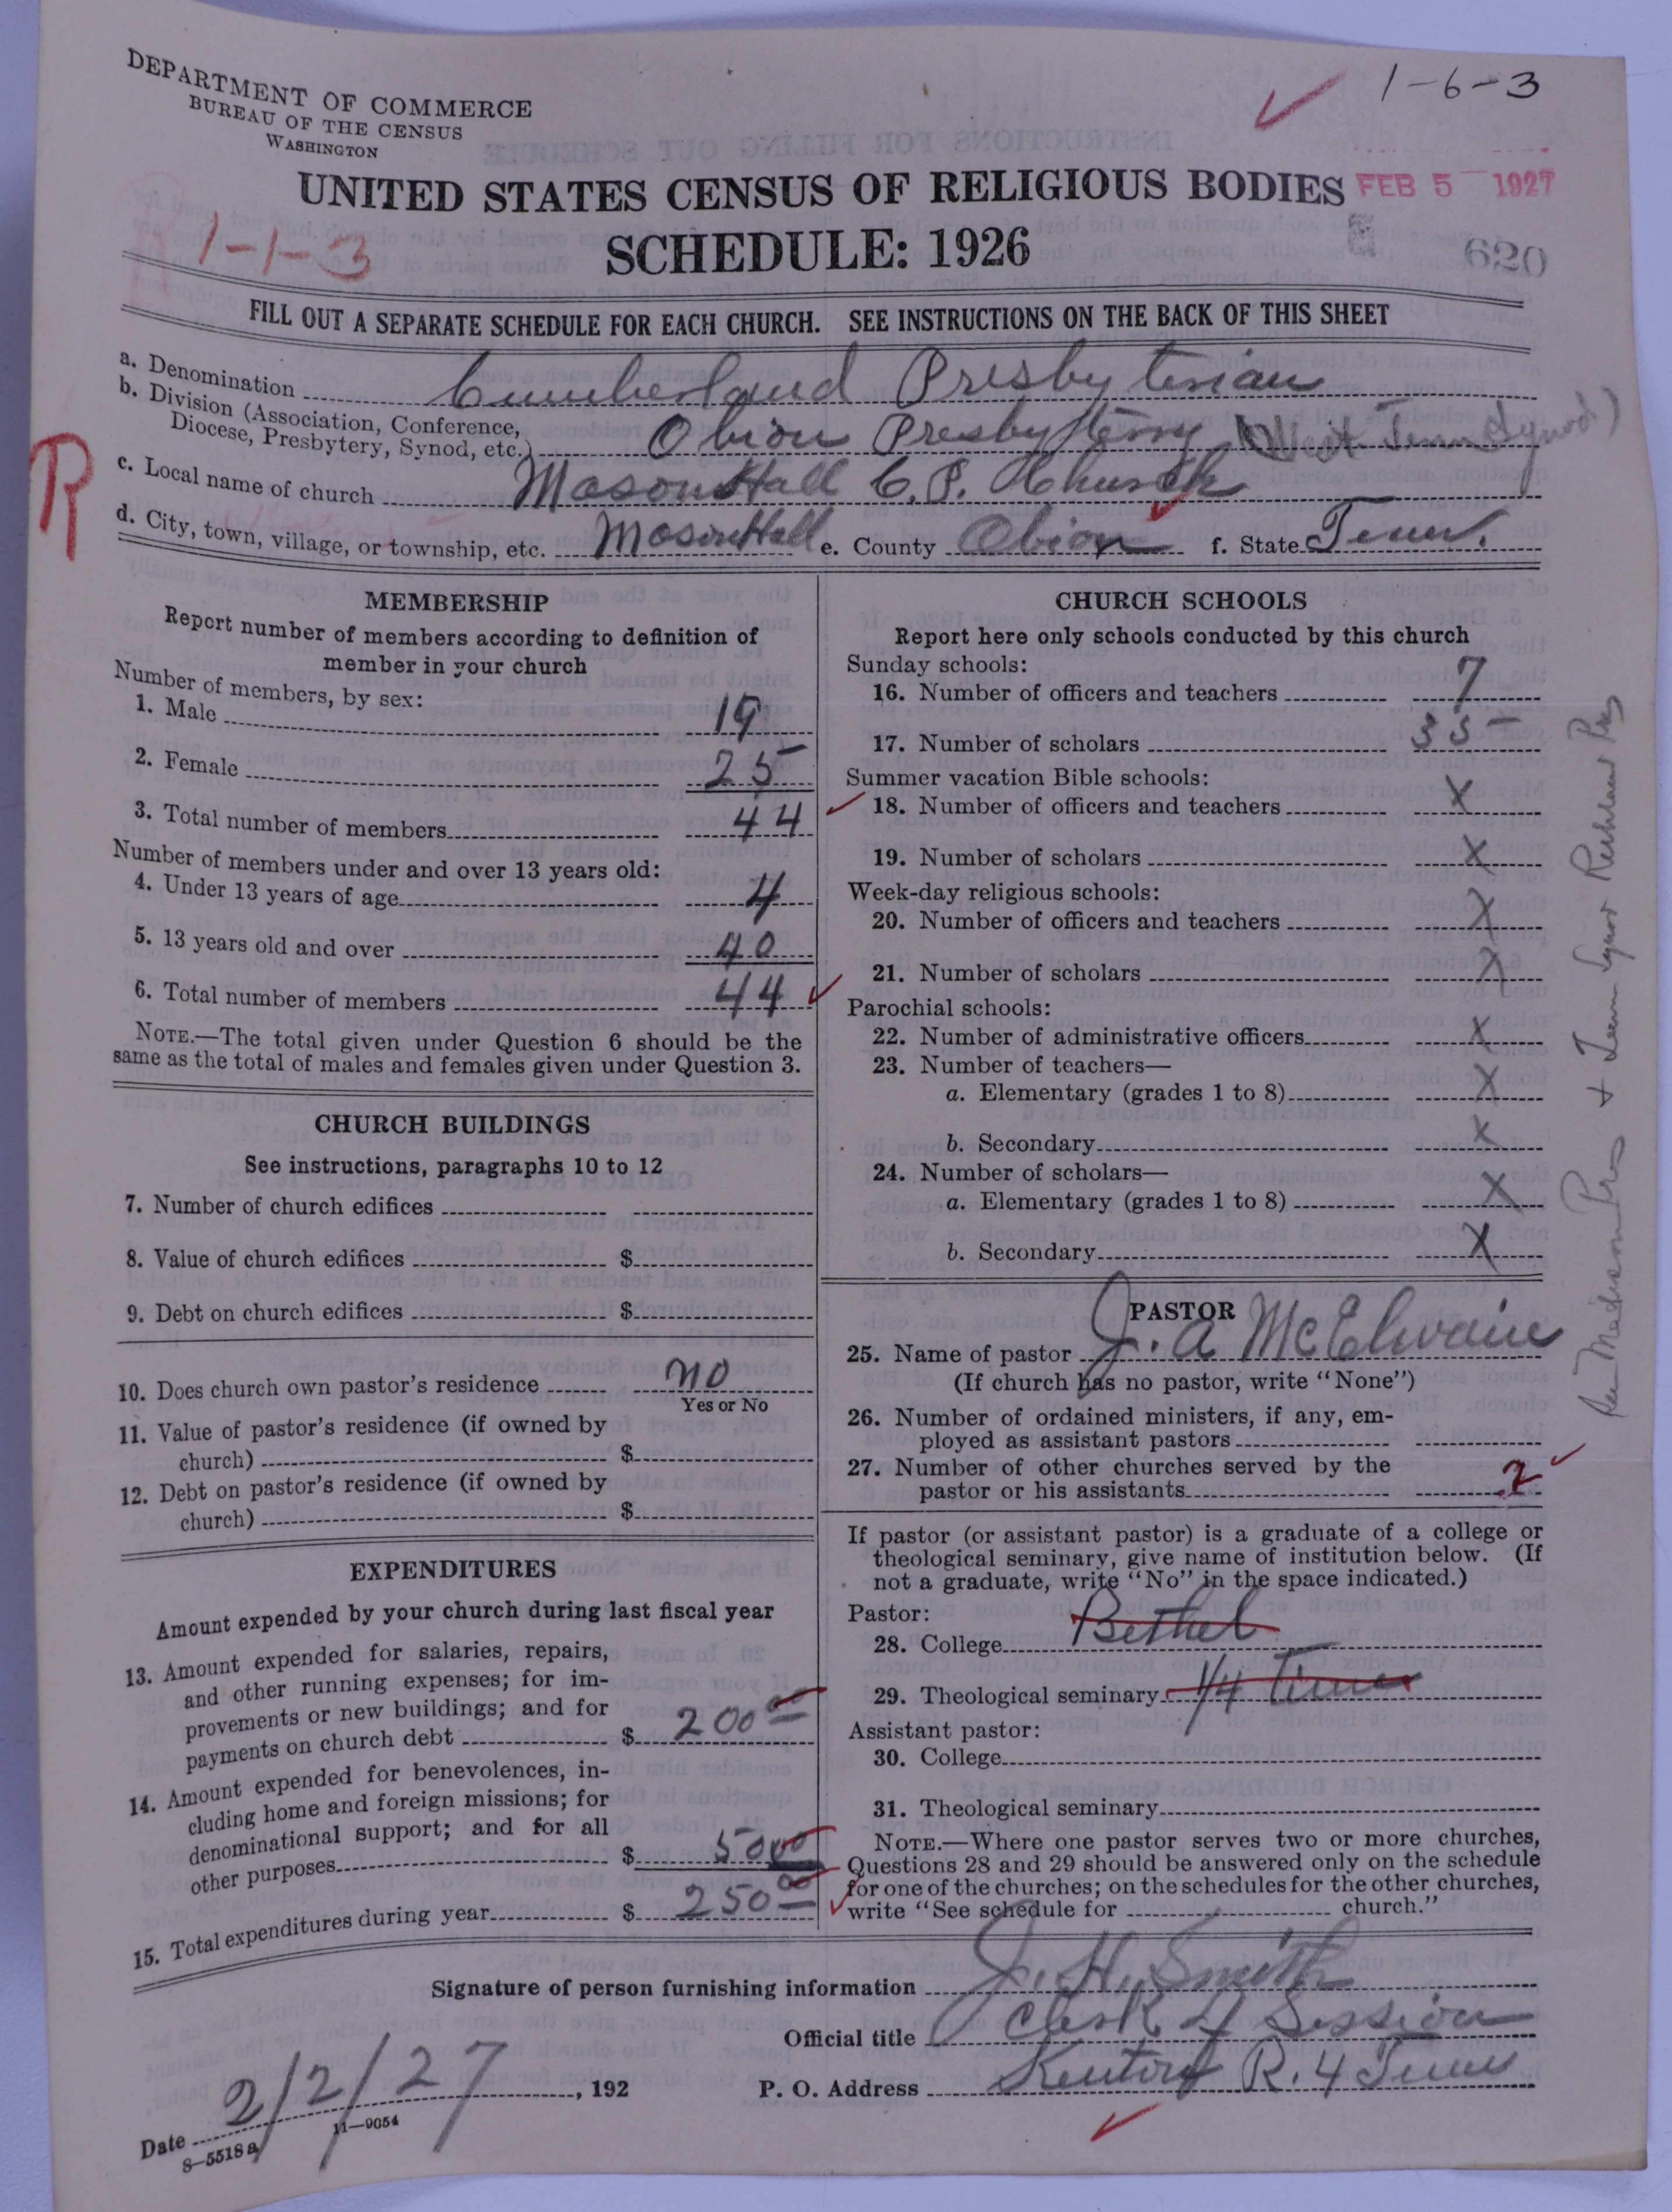 DEPARTMENT OF COMMERCE
BUREAU OF THE CENSUS
WASHINGTON
1-6-3
UNITED STATES CENSUS OF RELIGIOUS BODIES
FEB 5 1927
1-1-3
SCHEDULE: 1926
620
FILL OUT A SEPARATE SCHEDULE FOR EACH CHURCH. SEE INSTRUCTIONS ON THE BACK OF THIS SHEET
a. Denomination Cumberland Presbyterian
b. Division (Association, Conference,
Diocese, Presbytery, Synod, etc.) Obion Presbytery West Tenn Synod)
R
c. Local name of church Mason Hall C.P. Church
d. City, town, village, or township, etc. Mason Hall e. County Obion f. State Tenn.
MEMBERSHIP
Report number of members according to definition of
member in your church
Number of members, by sex:
1. Male 19
2. Female 25
3. Total number of members 44
Number of members under and over 13 years old:
4. Under 13 years of age 4
5. 13 years old and over 40
6. Total number of members 44
NOTE.—The total given under Question 6 should be the
same as the total of males and females given under Question 3.
CHURCH BUILDINGS
See instructions, paragraphs 10 to 12
7. Number of church edifices
8. Value of church edifices $
9. Debt on church edifices $
10. Does church own pastor's residence no
Yes or No
11. Value of pastor's residence (if owned by
church) $
12. Debt on pastor's residence (if owned by
church) $
EXPENDITURES
Amount expended by your church during last fiscal year
13. Amount expended for salaries, repairs,
and other running expenses; for im-
provements or new buildings; and for
payments on church debt $ 200 00
14. Amount expended for benevolences, in-
cluding home and foreign missions; for
denominational support; and for all
other purposes $ 50 00
15. Total expenditures during year $ 250 00
CHURCH SCHOOLS
Report here only schools conducted by this church
Sunday schools:
16. Number of officers and teachers 7
17. Number of scholars 35
Summer vacation Bible schools:
18. Number of officers and teachers X
19. Number of scholars X
Week-day religious schools:
20. Number of officers and teachers X
21. Number of scholars X
Parochial schools:
22. Number of administrative officers X
23. Number of teachers—
a. Elementary (grades 1 to 8) X
b. Secondary X
24. Number of scholars—
a. Elementary (grades 1 to 8) X
b. Secondary X
PASTOR
25. Name of pastor J. A McElwain
(If church has no pastor, write "None")
26. Number of ordained ministers, if any, em-
ployed as assistant pastors
27. Number of other churches served by the
pastor or his assistants 2
If pastor (or assistant pastor) is a graduate of a college or
theological seminary, give name of institution below. (If
not a graduate, write "No" in the space indicated.)
Pastor:
28. College Bethel
29. Theological seminary 1/4 Time
Assistant pastor:
30. College
31. Theological seminary
NOTE.—Where one pastor serves two or more churches,
Questions 28 and 29 should be answered only on the schedule
for one of the churches; on the schedules for the other churches,
write "See schedule for church."
Signature of person furnishing information J. H. Smith
Official title Clerk of Session
Date 2/2/27, 192
P. O. Address Kenton R. 4 Tenn
11—9054
8—5518 a